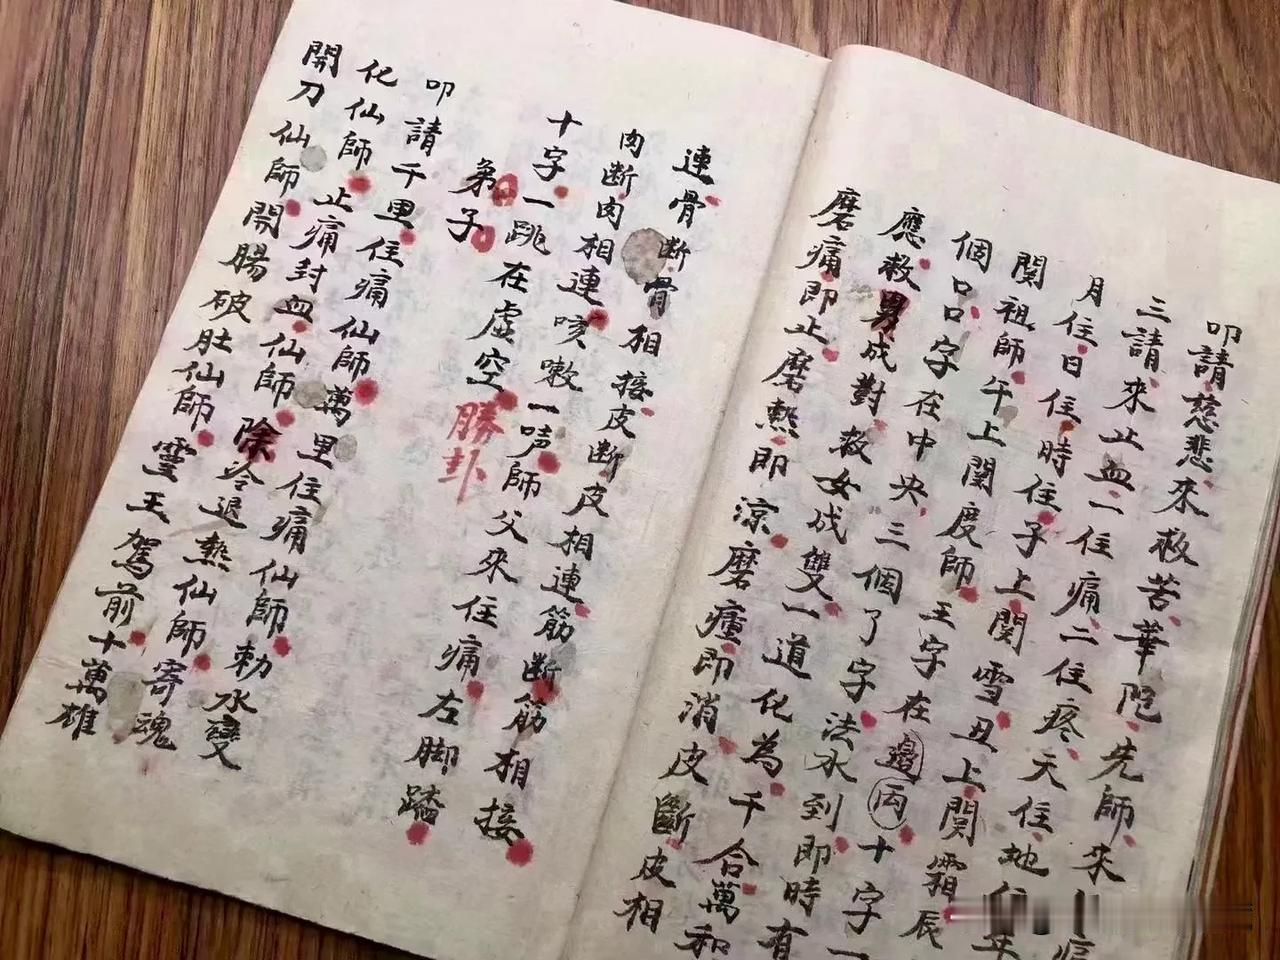 叩請慈悲來救苦華陀先師來
三請來止血一住痛二住疼天住地住年
月住日住時住子上関雪丑上関霜辰
関祖師午上関度師王字在邊丙十字一
個口口字在中央三個了字法水到即時有
應救男成對救女成雙一道化為千合萬和
磨痛即止磨熱即涼磨瘇即消皮斷皮相
連骨断骨相接皮断皮相連筋断筋相接
肉断肉相連咳嗽一声師父來住痛左脚踏
十字一跳在虛空勝卦
弟子
叩請千里住痛仙師萬里住痛仙師勅水變
化仙師止痛封血仙師除冷退熱仙師寄魂
開刀仙師開腸破肚仙師雪王駕前十萬雄